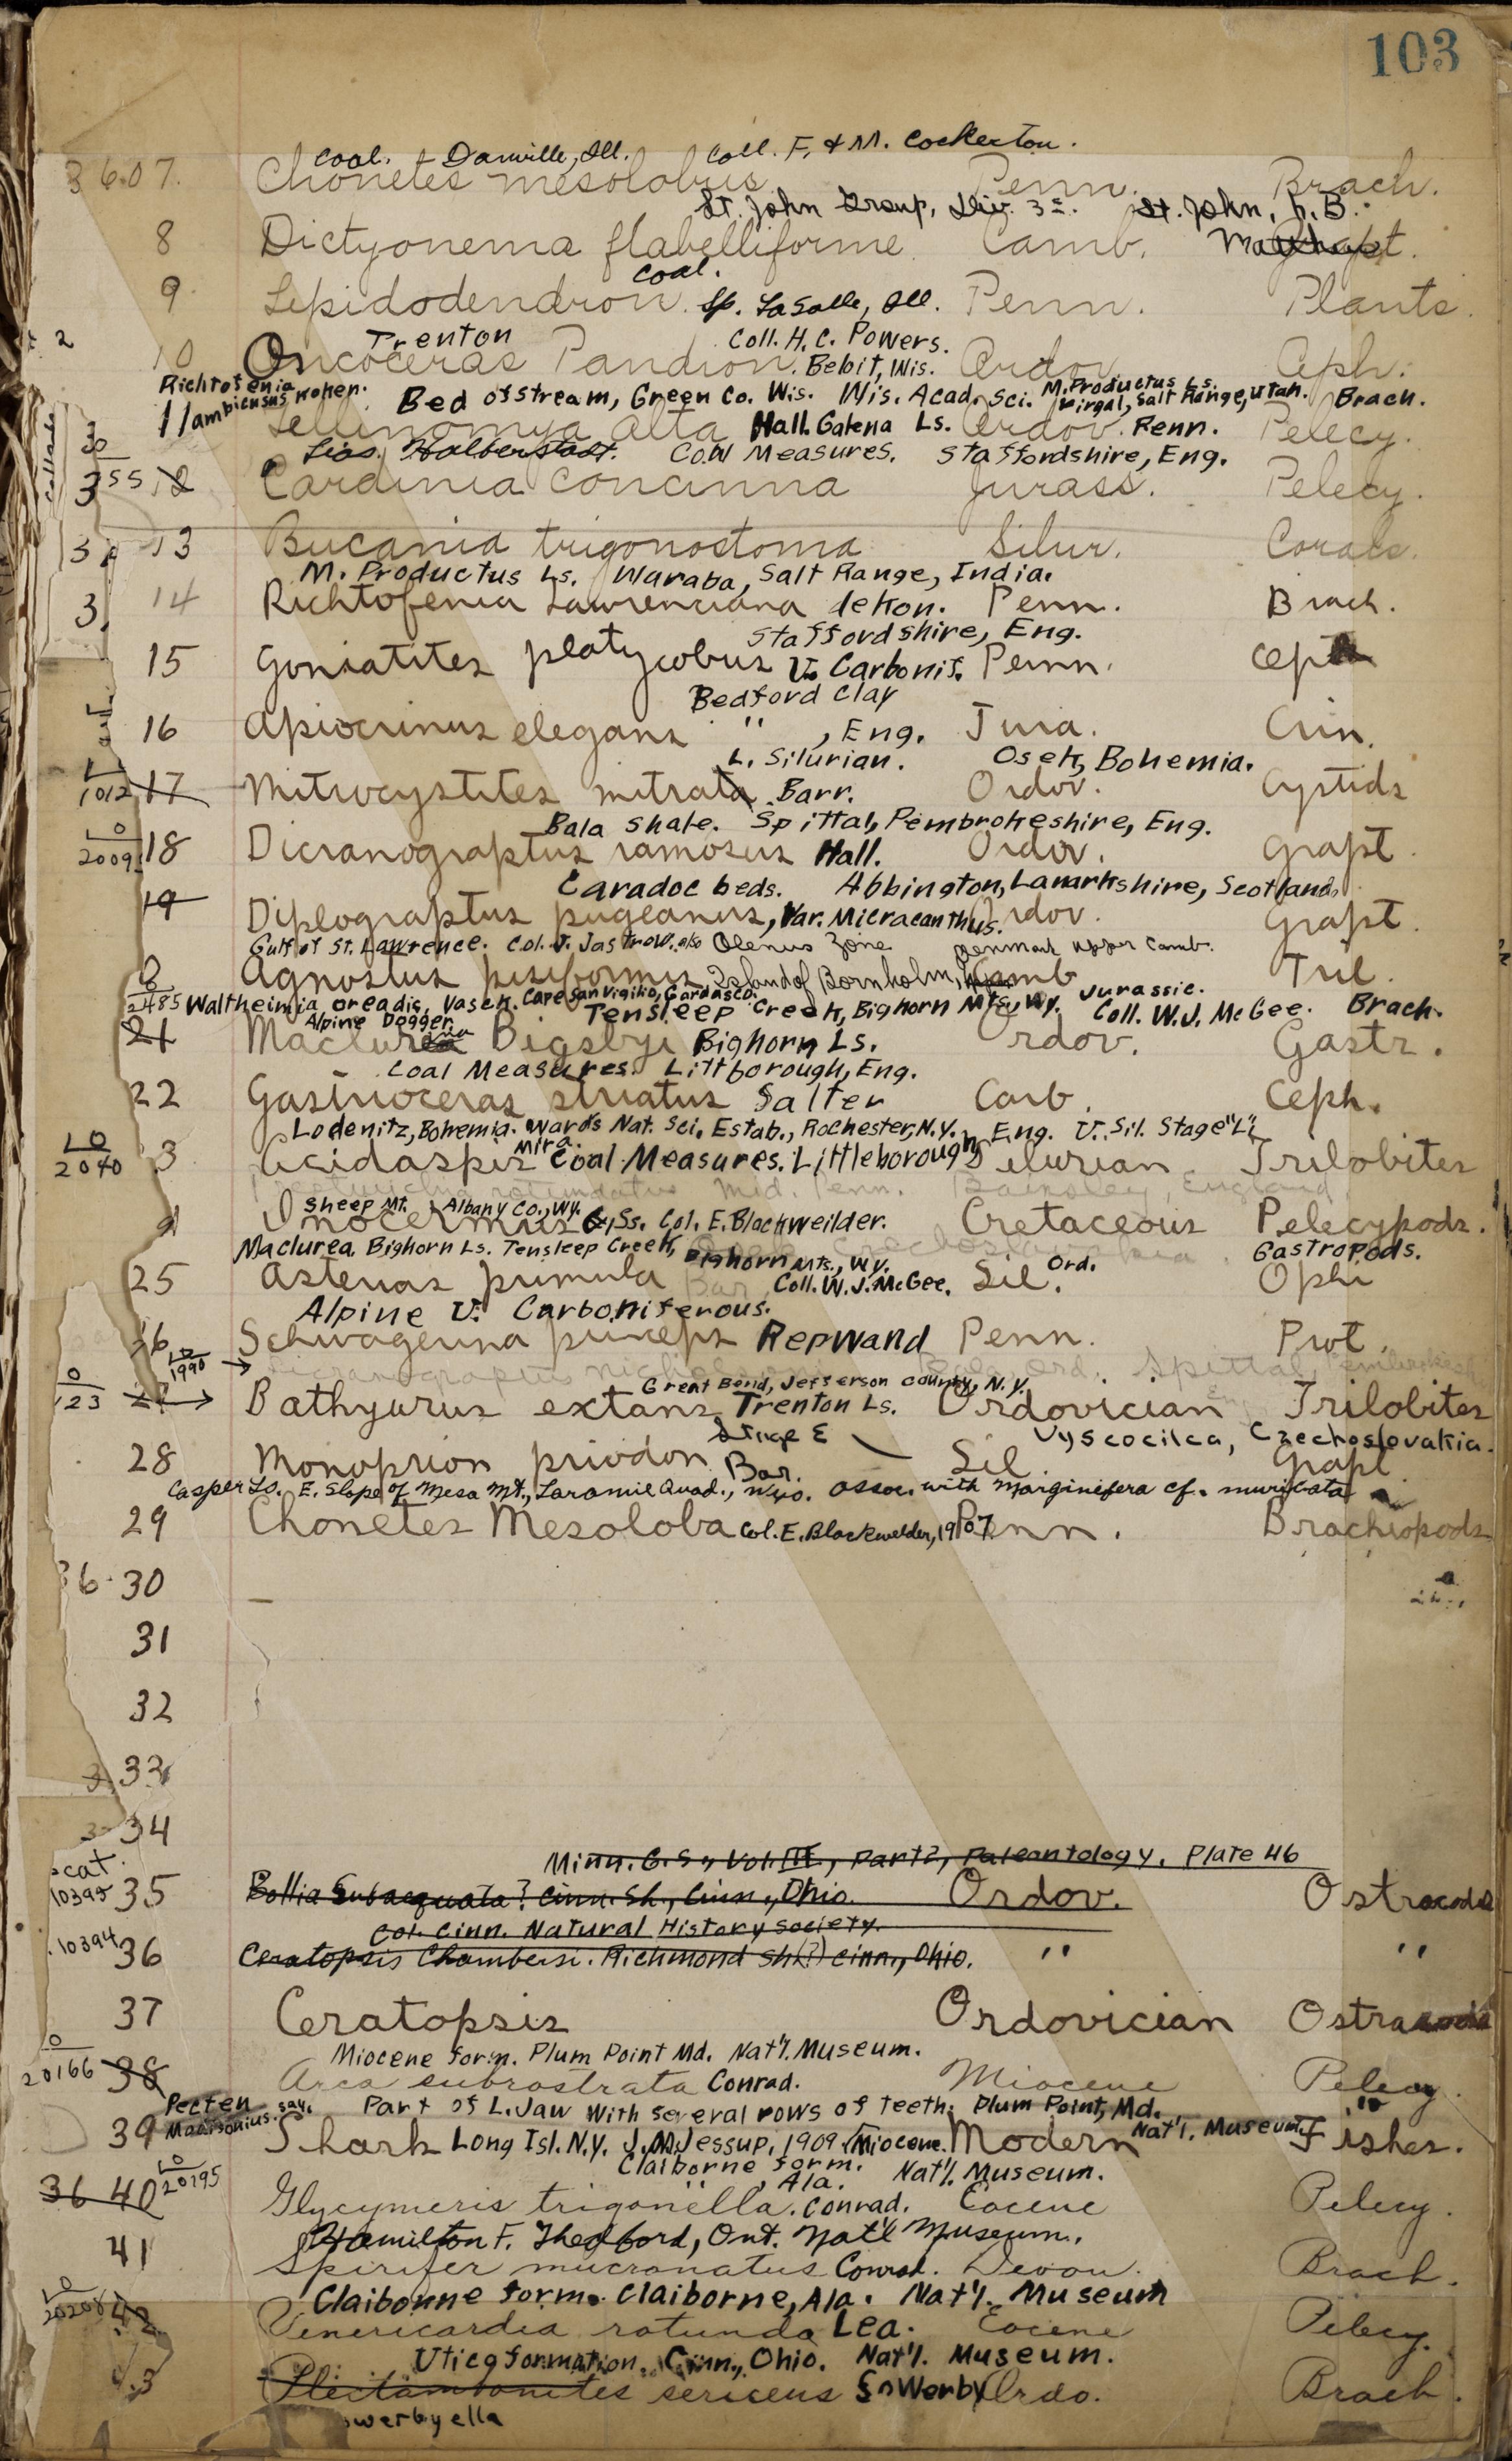 103
Coal. Danville, Ill. Coll. F. & M. Cockerton.
3607. Chonetes mesolobus Penn. Brach.
St. John Group, Div. 3c. St. John, N. B.
8 Dictyonema flabelliforme Camb. Grapt.
Coal.
9 Lepidodendron sp. LaSalle, Ill. Penn. Plants.
Trenton Coll. H. C. Powers.
10 Oncoceras Pandion. Beloit, Wis. Ordov. Ceph.
Richtofenia M. Productus Ls.
ambiensus Kohen. Bed of stream, Green Co. Wis. Wis. Acad. Sci. Virgal, Salt Range, Utah. Brach.
11 Tellinomya alta Hall. Galena Ls. Ordov. Penn. Pelecy.
Lias. Halberstadt. Coal Measures. Staffordshire, Eng.
12 Cardinia concinna Jurass. Pelecy.
13 Bucania trigonostoma Silur. Corals.
M. Productus Ls. Waraba, Salt Range, India.
14 Richtofenia Lawrenciana deKon. Penn. Brach.
Staffordshire, Eng.
15 Goniatites platylobus U. Carbonif. Penn. Ceph
Bedford Clay
16 Apiocrinus elegans " , Eng. Jura. Crin.
L. Silurian. Osek, Bohemia.
1012 17 Mitrocystites mitrata Barr. Ordov. Cystids
Bala Shale. Spittal, Pembrokeshire, Eng.
2009 18 Dicranograptus ramosus Hall. Ordov. Grapt.
Caradoc beds. Abbington, Lanarkshire, Scotland.
19 Diplograptus pugeanus, Var. Micracanthus. Ordov. Grapt.
Gulf of St. Lawrence. Col. J. Jastrow. also Olenus Zone Denmark Upper Camb.
Agnostus pisiformis Island of Bornholm, Camb Tril.
2485 Waltheimia oreadis, Vasek. Cape San Vigilio, Gardasco. Jurassic.
Alpine Dogger. Tensleep Creek, Bighorn Mts., Wy. Coll. W. J. McGee. Brach.
21 Maclurea Bigsbyi Bighorn Ls. Ordov. Gastr.
Coal Measures. Littborough, Eng.
22 Gastrioceras striatus Salter Carb. Ceph.
Lodenitz, Bohemia. Wards Nat. Sci. Estab., Rochester, N.Y. Eng. U. Sil. Stage "L"
2040 3 Acidaspis Mira. Coal Measures. Littleborough Silurian Trilobites
Mid. Penn. England
Sheep Mt. Albany Co., Wy.
Inocermus Ss. Col. E. Blackweilder. Cretaceous Pelecypods.
Maclurea Bighorn Ls. Tensleep Creek, Bighorn Mts., Wy. Ord. Gastropods.
25 Asterias primula Bar Coll. W. J. McGee. Sil. Ophi
Alpine U. Carboniferous.
26 Schwagerina princeps Repwand Penn. Prot.
1990 → Dicranograptus Ord. Spittal, Pembrokesh
Great Bend, Jefferson County, N.Y.
123 27 → Bathyurus extans Trenton Ls. Ordovician Trilobites
Stage E Vyscocilca, Czechoslovakia.
28 Monoprion priodon Bar. Sil. Grapt
Casper Ls. E. Slope of Mesa Mt., Laramie Quad., Wyo. Assoc. with Marginifera cf. muricata
29 Chonetes Mesoloba Col. E. Blackwelder, 1907. Penn. Brachiopods
36 30
31
32
33
34
Minn. G. S., Vol. III, Part 2, Paleontology. Plate 46
cat. 10395 35 Bollia Subaequata? Cinn. Sh., Cinn., Ohio. Ordov. Ostracods
Col. Cinn. Natural History Society.
10394 36 Ceratopsis Chambersi. Richmond Sh(?) Cinn., Ohio. " "
37 Ceratopsis Ordovician Ostracods
Miocene form. Plum Point Md. Nat'l. Museum.
20166 38 Arca subrostrata Conrad. Miocene Pelecy.
Pecten Madisonius. Say. Part of L. Jaw with several rows of teeth. Plum Point, Md. "
39 Shark Long Isl. N.Y. J. M. Jessup, 1909. Miocene. Modern Nat'l. Museum. Fishes.
Claiborne form.
" , Ala. Nat'l. Museum.
36 40 20195 Glycymeris trigonella. Conrad. Eocene Pelecy.
Hamilton F. Thedford, Ont. Nat'l Museum.
41 Spirifer mucronatus Conrad. Devon. Brach.
Claiborne form. Claiborne, Ala. Nat'l. Museum
20208 42 Venericardia rotunda Lea. Eocene Pelecy.
Utica formation. Cinn., Ohio. Nat'l. Museum.
43 Plectambonites sericeus Sowerby Ordo. Brach.
owerbyella